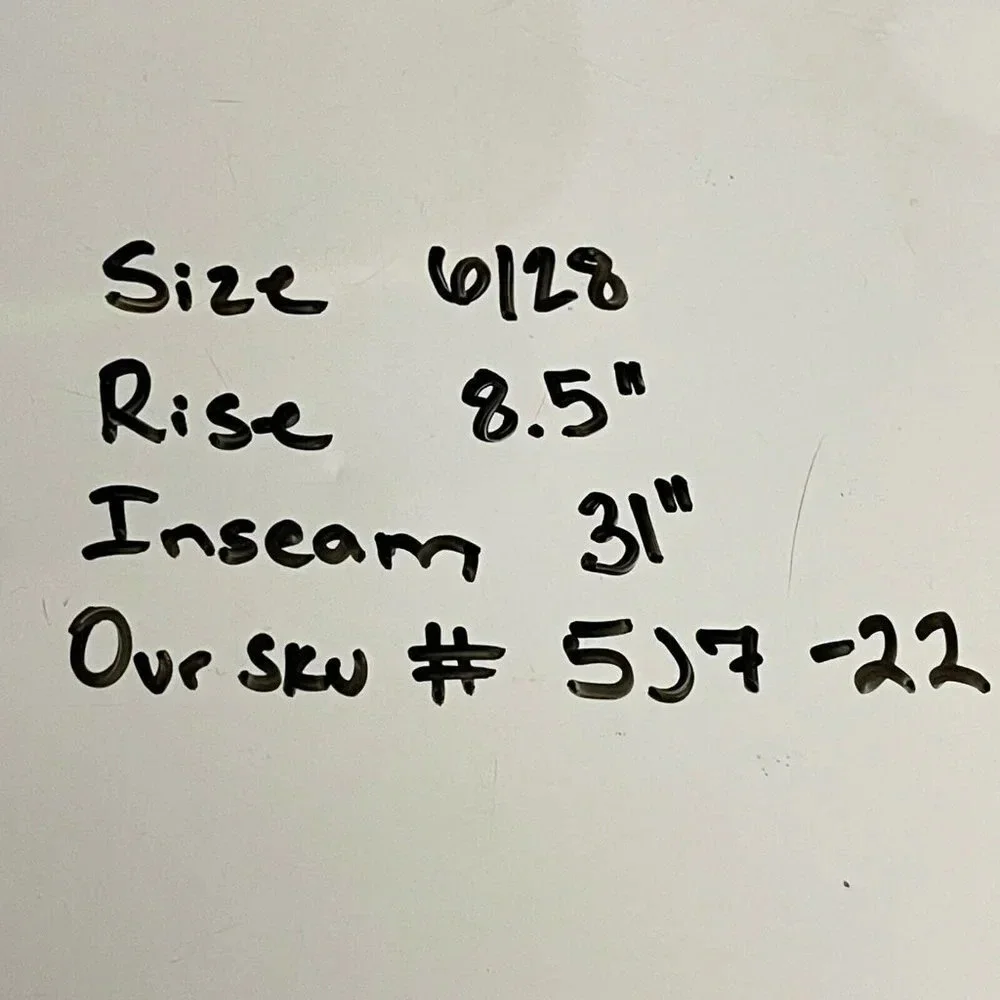 Size 6/28
Rise 8.5"
Inseam 31"
Our SKU # 5J7-22